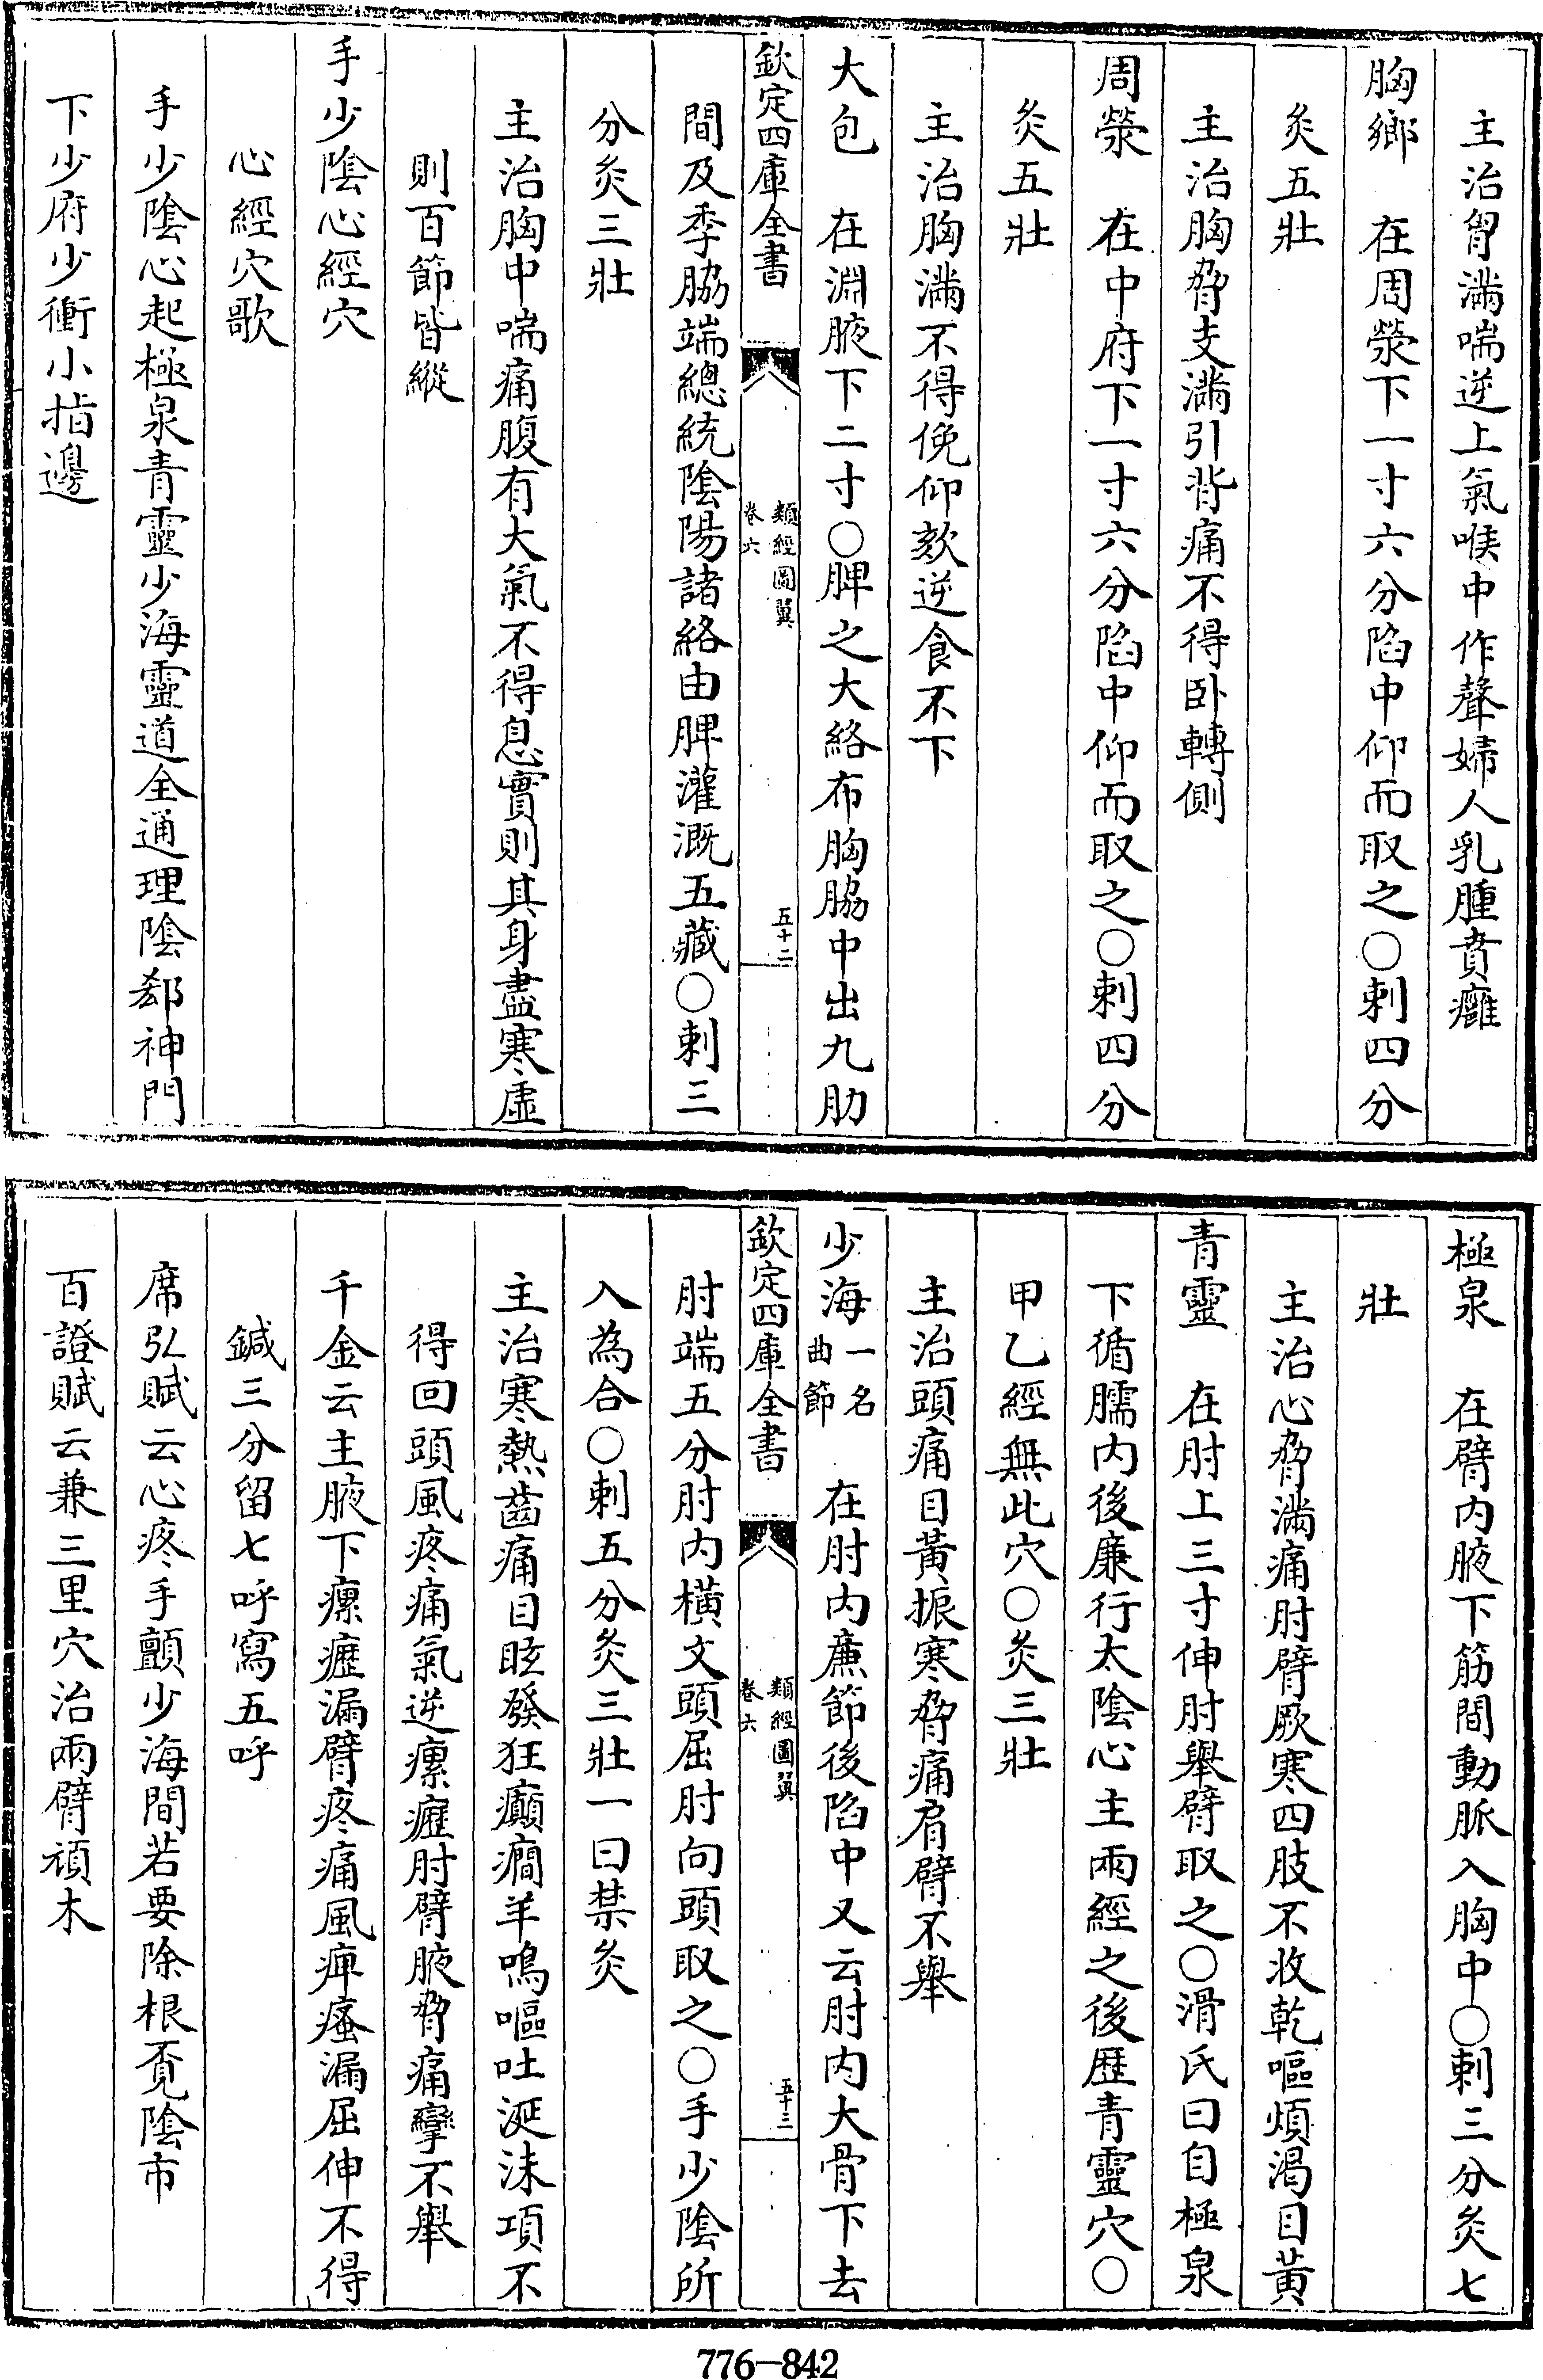 主治胷滿喘逆上氣喉中作聲婦人乳腫賁癰
胸鄉　在周滎下一寸六分陷中仰而取之○刺四分
灸五壯
主治胸脅支滿引背痛不得卧轉側
周滎　在中府下一寸六分陷中仰而取之○刺四分
灸五壯
主治胸滿不得俛仰欬逆食不下
大包　在淵腋下二寸○脾之大絡布胸脇中出九肋
欽定四庫全書　類經圖翼　卷六　五十二
間及季脇端總統陰陽諸絡由脾灌溉五藏○刺三
分灸三壯
主治胸中喘痛腹有大氣不得息實則其身盡寒虛
則百節皆縱
手少陰心經穴
心經穴歌
手少陰心起極泉青靈少海靈道全通理陰郄神門
下少府少衝小指邊
極泉　在臂内腋下筋間動脈入胸中○刺三分灸七
壯
主治心脅滿痛肘臂厥寒四肢不收乾嘔煩渴目黃
青靈　在肘上三寸伸肘舉臂取之○滑氏曰自極泉
下循臑内後廉行太陰心主兩經之後歷青靈穴○
甲乙經無此穴○灸三壯
主治頭痛目黃振寒脅痛肩臂不舉
少海一名曲節　在肘内廉節後陷中又云肘内大骨下去
欽定四庫全書　類經圖翼　卷六　五十三
肘端五分肘内橫文頭屈肘向頭取之○手少陰所
入為合○刺五分灸三壯一曰禁灸
主治寒熱齒痛目眩發狂癲癇羊鳴嘔吐涎沫項不
得回頭風疼痛氣逆瘰癧肘臂腋脅痛攣不舉
千金云主腋下瘰癧漏臂疼痛風痺瘙漏屈伸不得
鍼三分留七呼瀉五呼
席弘賦云心疼手顫少海間若要除根覓陰市
百證賦云兼三里穴治兩臂頑木
776-842